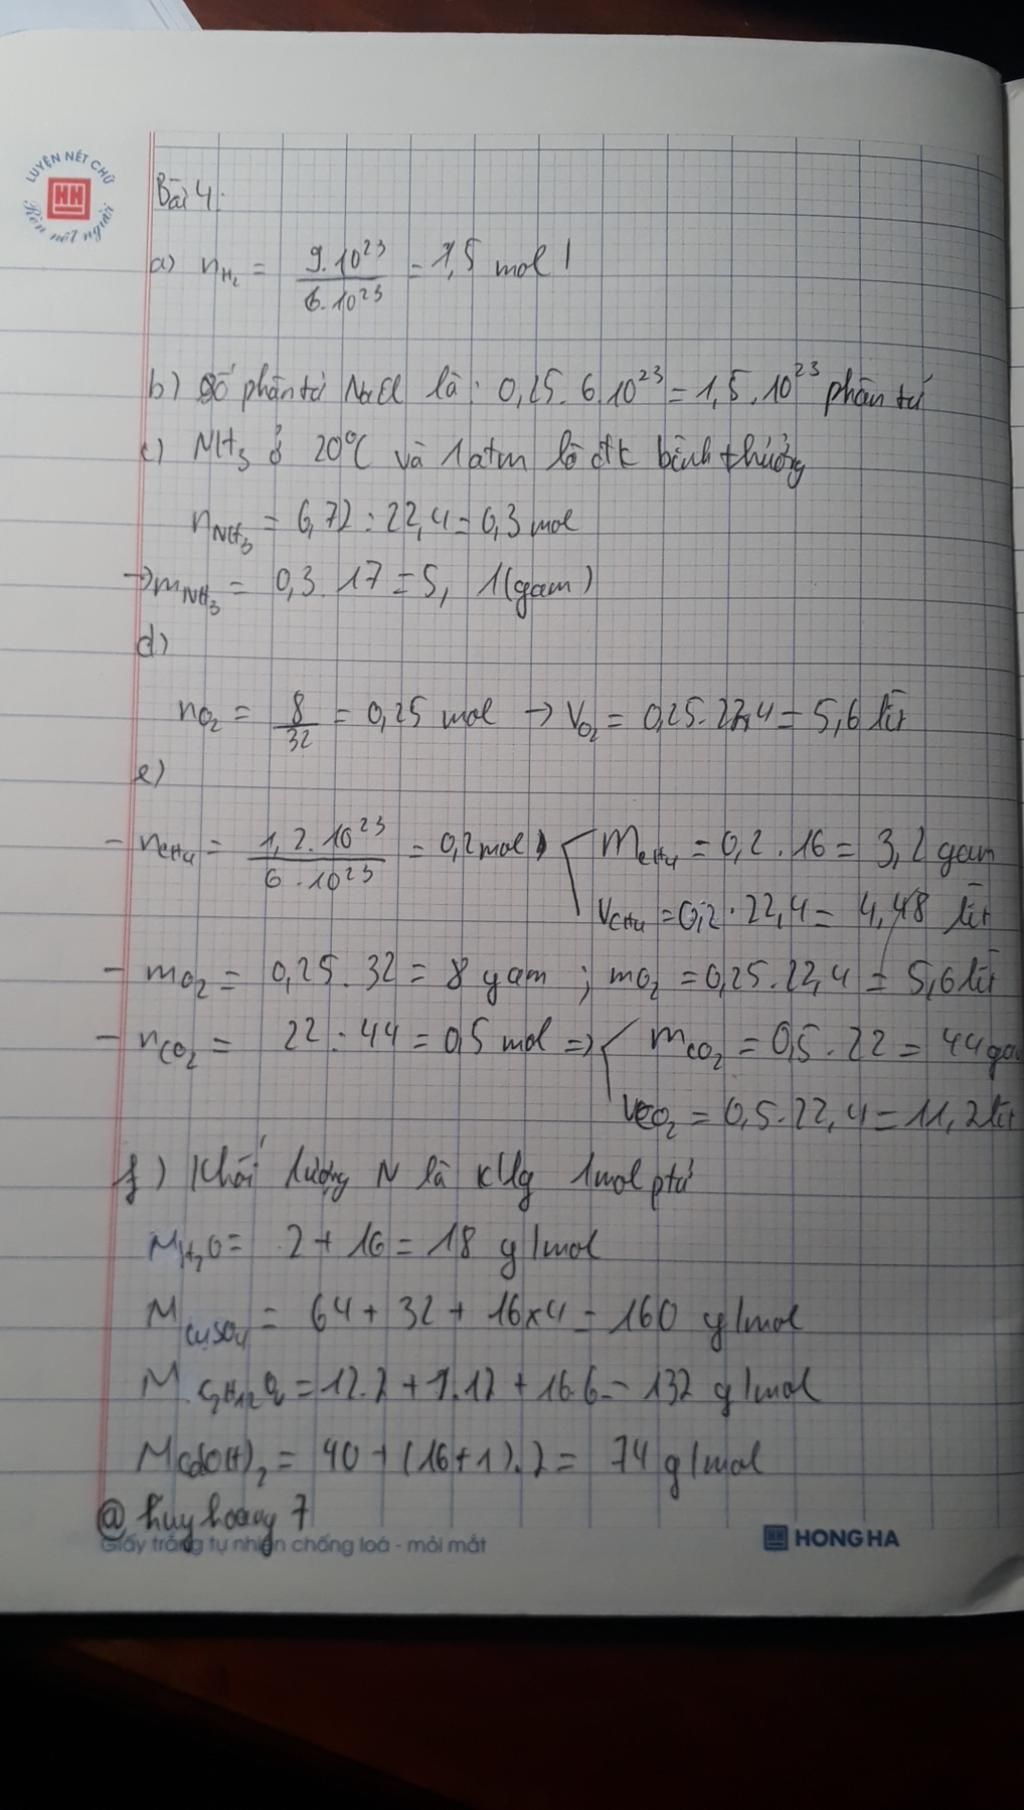 LUYỆN NẾT CHỮ
HH
Rèn nết người
Bài 4:
a) nH₂ = 9.10²³ / 6.10²³ = 1,5 mol
b) Số phân tử NaCl là: 0,25. 6.10²³ = 1,5.10²³ phân tử
c) NH₃ ở 20°C và 1atm là đk bình thường
nNH₃ = 6,72 : 22,4 = 0,3 mol
→ mNH₃ = 0,3. 17 = 5, 1 (gam)
d)
nO₂ = 8/32 = 0,25 mol → VO₂ = 0,25. 22,4 = 5,6 lít
e)
- nCH₄ = 1,2.10²³ / 6.10²³ = 0,2 mol { mCH₄ = 0,2 . 16 = 3,2 gam
VCH₄ = 0,2 . 22,4 = 4,48 lít
- mO₂ = 0,25. 32 = 8 gam ; mO₂ = 0,25. 22,4 = 5,6 lít
- nCO₂ = 22 : 44 = 0,5 mol => { mCO₂ = 0,5. 22 = 44 ga
VCO₂ = 0,5. 22,4 = 11, 2 lít
f) Khối lượng N là klg 1mol ptử
MH₂O = 2 + 16 = 18 g/mol
MCuSO₄ = 64 + 32 + 16x4 = 160 g/mol
M = 12. 2 + 1. 12 + 16.6 = 132 g/mol
MCa(OH)₂ = 40 + (16+1). 2 = 74 g/mol
@ huyhoang 7
Giấy trắng tự nhiên chống loá - mỏi mắt
HH HONG HA